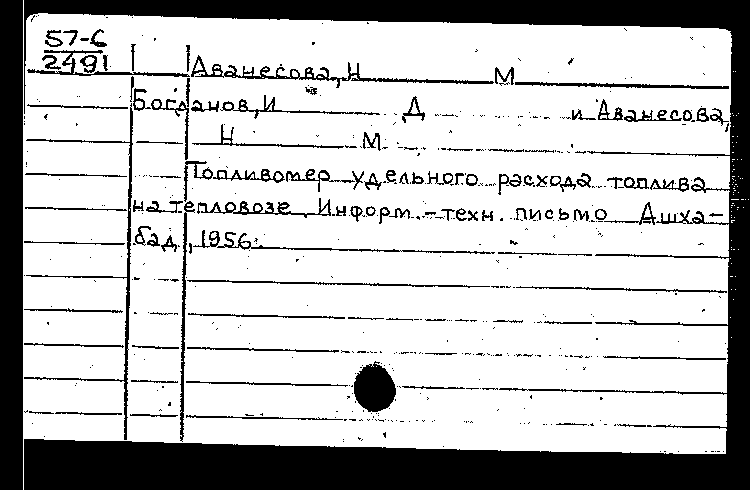 57-6
2491
Аванесова, Н М
Богданов, И Д и Аванесова,
Н М
Топливомер удельного расхода топлива
на тепловозе. Информ.-техн. письмо Ашха-
бад, 1956.